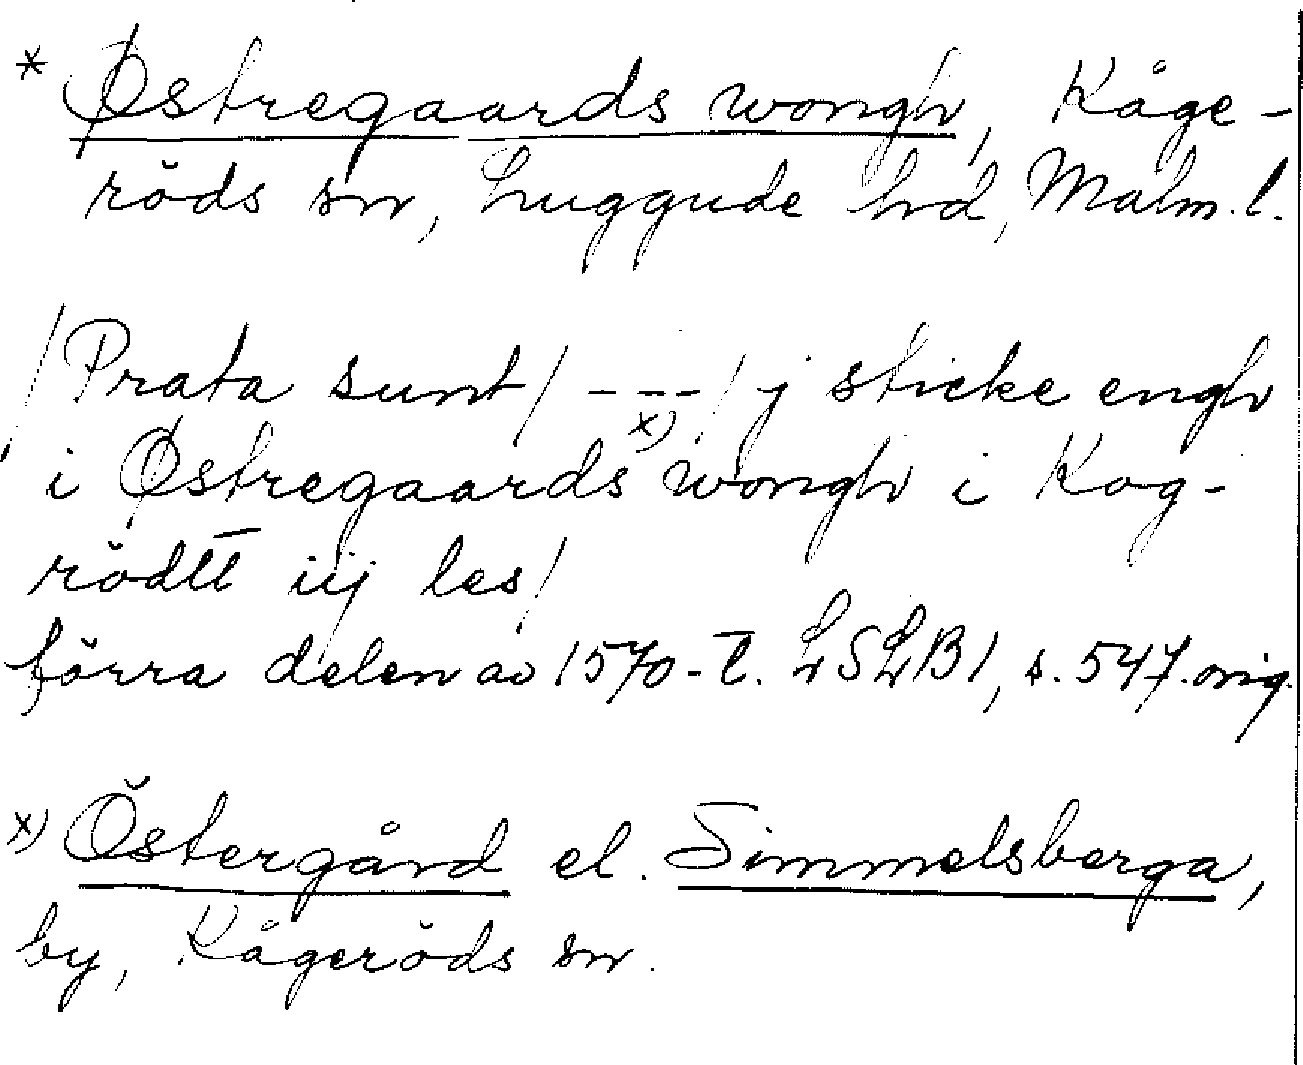 * Østregaards wongh, Kåge-
röds sn, Luggude hd, Malm. l.
/Prata sunt/ - - - / j sticke engh
i Østregaards x) wongh i Kog-
rödtt iij les/
förra delen av 1570-t. LSLB1, s. 547. orig.
x) Östergård el. Simmelsberga,
by, Kågeröds sn.